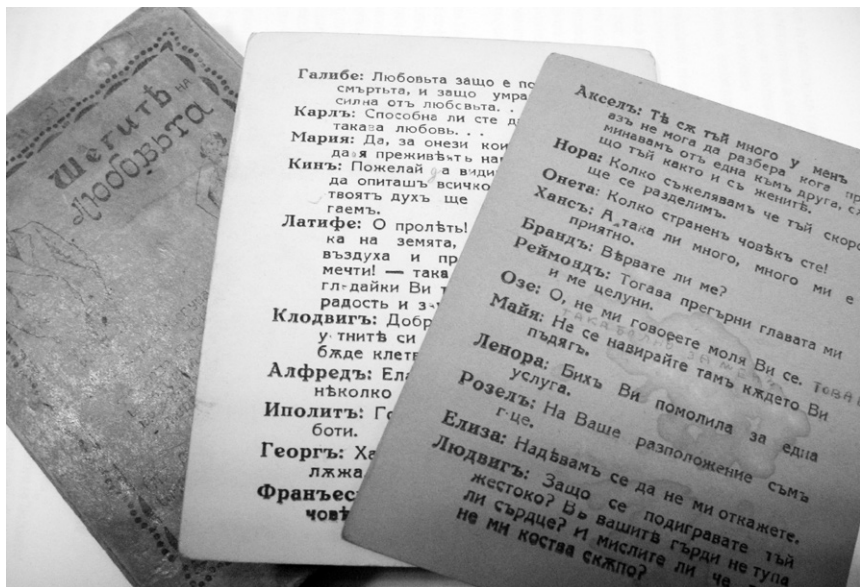 Шегитѣ на
Любовьта
Галибе: Любовьта защо е
смъртьта, и защо
силна отъ любовьта. .
Карлъ: Способна ли сте
такава любовь. . .
Мария: Да, за онези
да я преживѣятъ
Кинъ: Пожелай да
да опиташъ всичко
твоятъ духъ ще
гаемъ.
Латифе: О пролѣть!
ка на земята,
въздуха и
мечти! — така
гледайки Ви
радость и
Клодвигъ:
си
бѫде
Алфредъ:
нѣколко
Иполитъ:
боти.
Георгъ:
лѫжа
Аксель: Тѣ сѫ тъй много у менъ
азъ не мога да разбера кога
минавамъ отъ една къмъ друга,
що тъй както и съ женитѣ.
Нора: Колко съжелявамъ че тъй скоро
ще се разделимъ.
Онета: Колко страненъ човѣкъ сте!
Хансъ: А така ли много, много ми е
приятно.
Брандъ: Вѣрвате ли ме?
Реймондъ: Тогава прегърни главата ми
и ме целуни.
Озе: О, не ми говорете моля Ви се.
Майя: Не се навирайте тамъ кѫдето Ви
пъдягъ.
Ленора: Бихъ Ви помолила за една
услуга.
Розелъ: На Ваше разположение съмъ
г-це.
Елиза: Надѣвамъ се да не ми откажете.
Людвигъ: Защо се подигравате тъй
жестоко? Въ вашитѣ гърди не тупа
ли сърдце? И мислите ли че
не ми коства скѫпо?